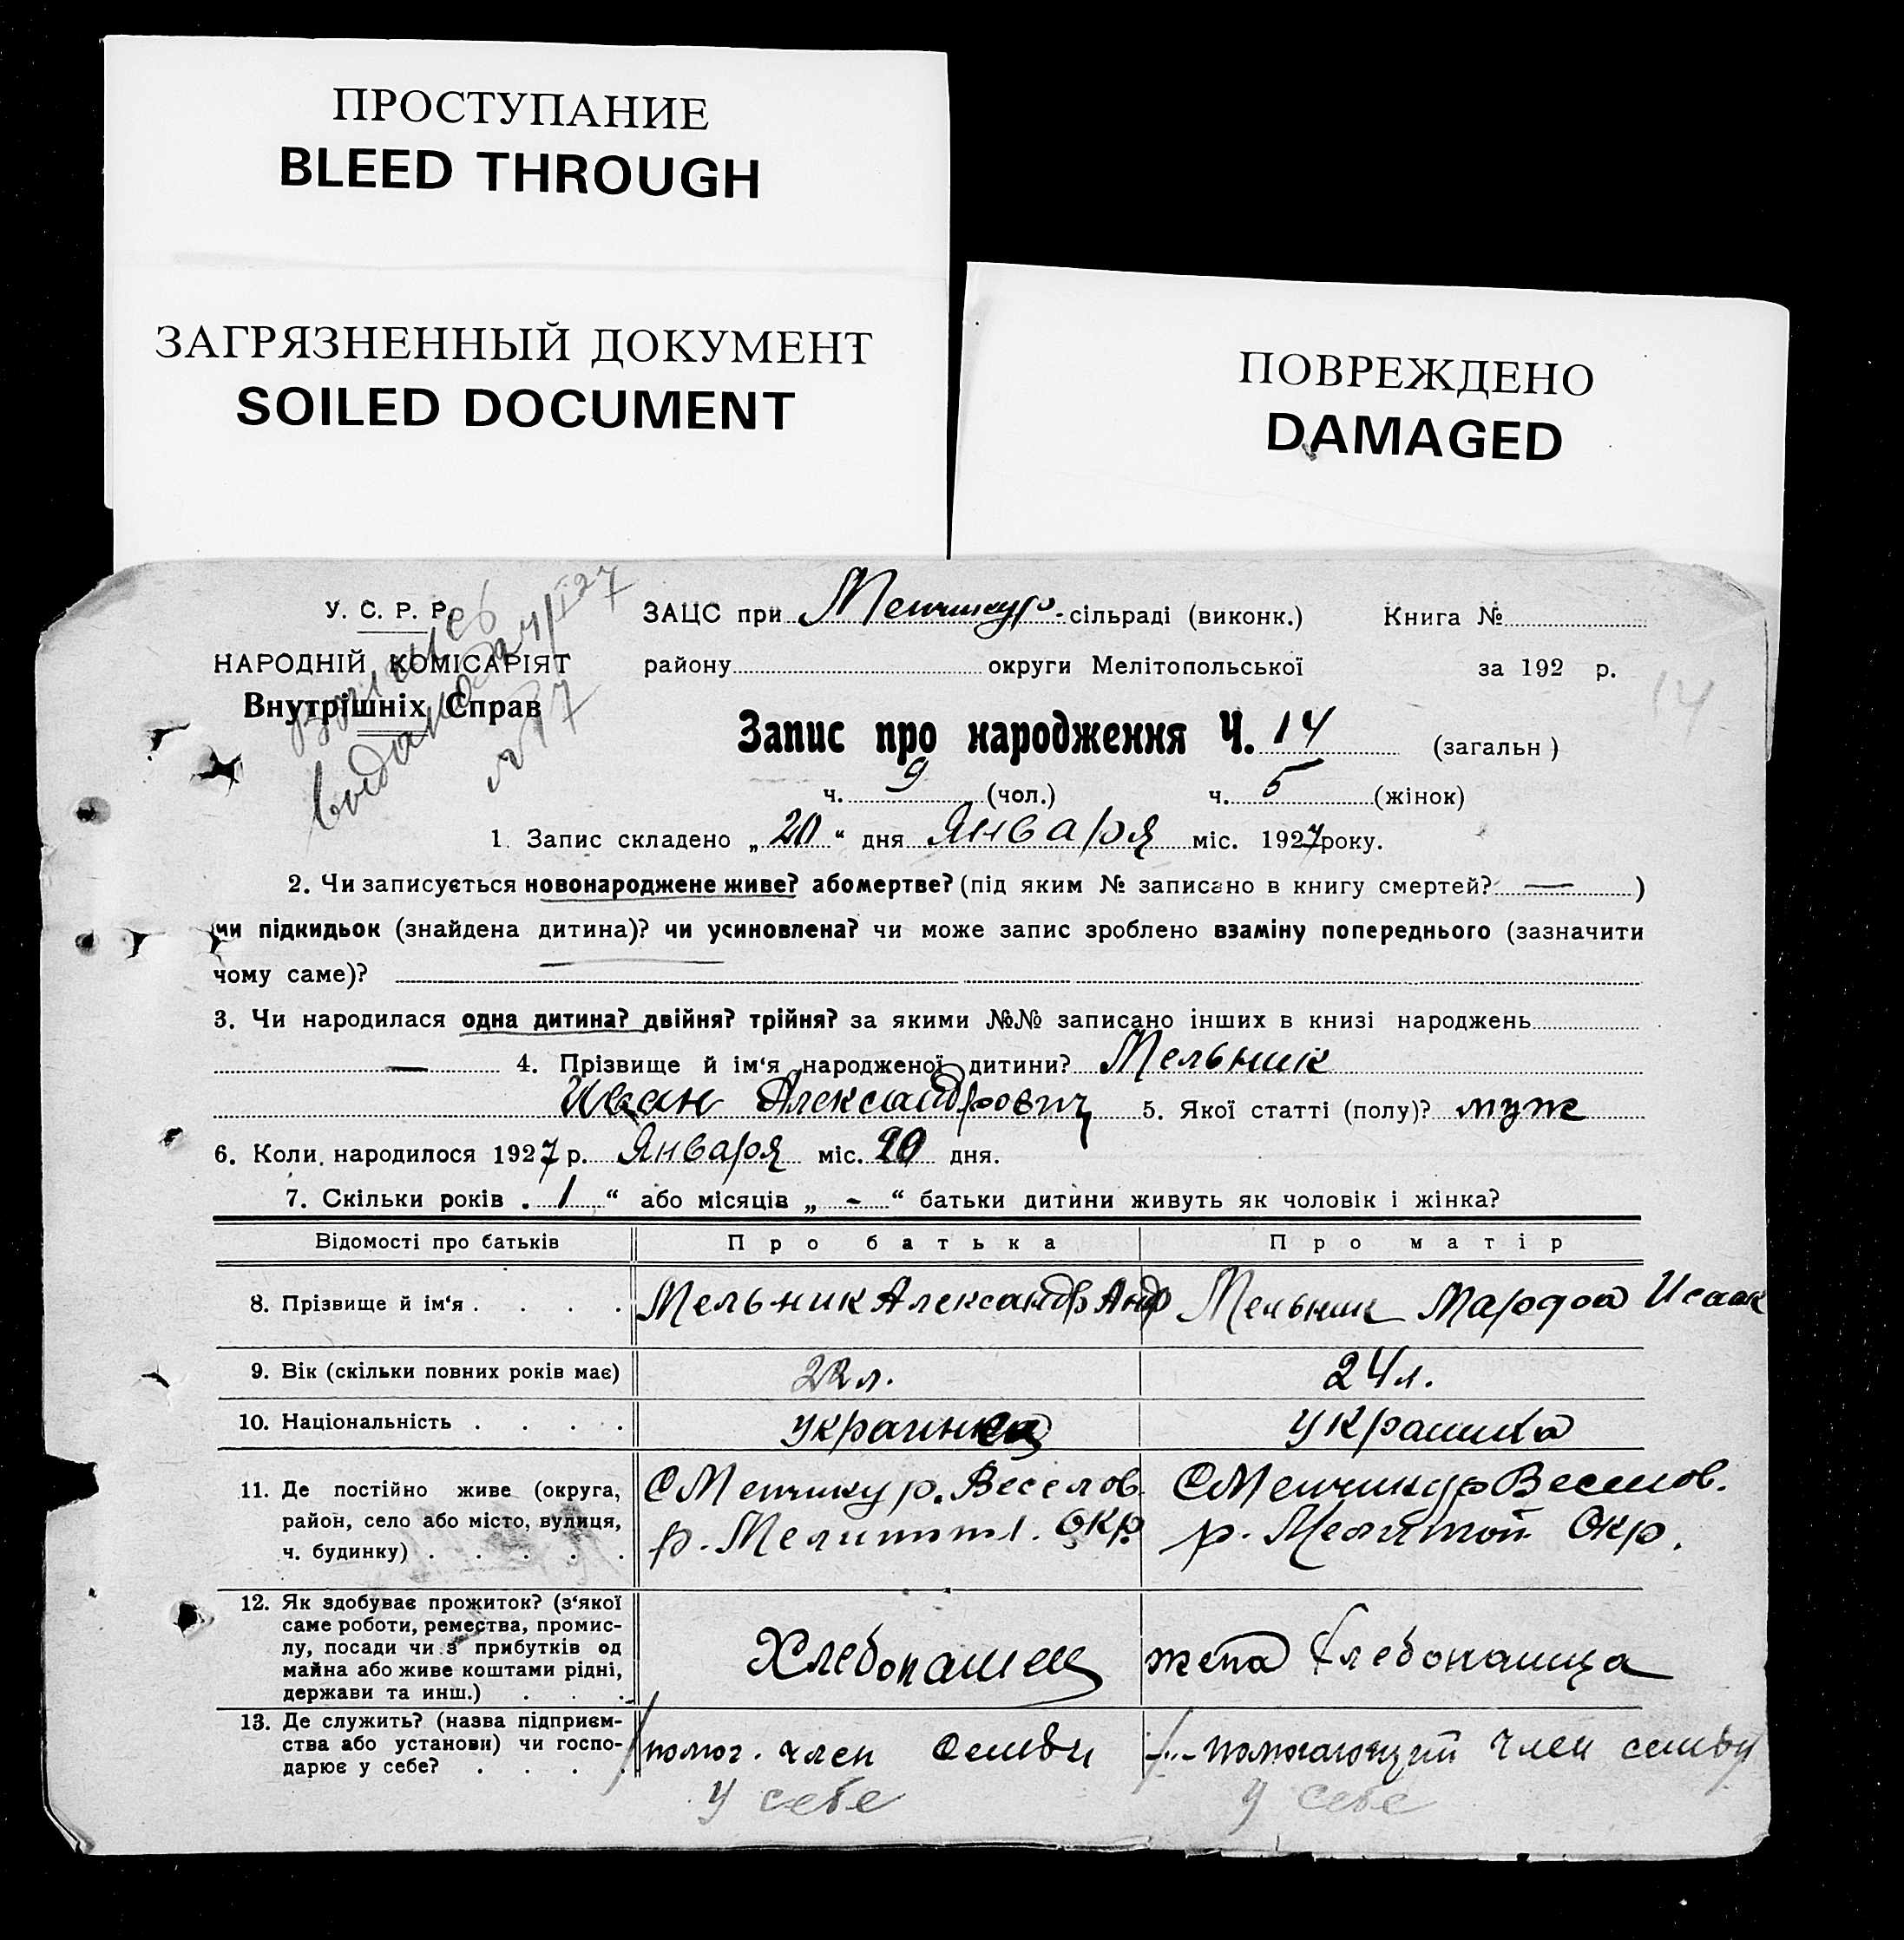 ПРОСТУПАНИЕ
BLEED THROUGH
ЗАГРЯЗНЕННЫЙ ДОКУМЕНТ
SOILED DOCUMENT
ПОВРЕЖДЕНО
DAMAGED
У. С. Р. Р.
НАРОДНІЙ КОМІСАРІЯТ
Внутрішніх Справ
ЗАЦС при Менчикур. сільраді (виконк.) Книга №
району округи Мелітопольської за 192 р.
14
Запис про народження Ч. 14 (загальн)
ч. 9 (чол.) ч. 5 (жінок)
1. Запис складено „20“ дня Января міс. 1927 року.
2. Чи записується новонароджене живе? або мертве? (під яким № записано в книгу смертей? — )
чи підкидьок (знайдена дитина)? чи усиновлена? чи може запис зроблено взаміну попереднього (зазначити
чому саме)?
3. Чи народилася одна дитина? двійня? трійня? за якими №№ записано інших в книзі народжень
— 4. Прізвище й ім‘я народженої дитини? Мельник
Иван Александрович 5. Якої статті (полу)? муж
6. Коли народилося 1927 р. Января міс. 20 дня.
7. Скільки років . 1 “ або місяців „ - “ батьки дитини живуть як чоловік і жінка?
Відомості про батьків Про батька Про матір
8. Прізвище й ім‘я . . . . Мельник Александр Андр Мельник Марфа Исаак
9. Вік (скільки повних років має) 22 л. 24 л.
10. Національність . . . . украинец украинка
11. Де постійно живе (округа, С Менчикур. Веселов. С Менчикур Веселов.
район, село або місто, вулиця, р. Мелитоп. Окр. р. Мелитоп Окр.
ч. будинку) . . . . .
12. Як здобуває прожиток? (з‘якої
саме роботи, ремества, промис-
лу, посади чи з прибутків од Хлебопашец жена хлебопашца
майна або живе коштами рідні,
держави та инш.) . . .
13. Де служить? (назва підприєм-
ства або установи) чи госпо- помог. член семьи помогающий член семьи
дарює у себе? . . . .
у себе у себе